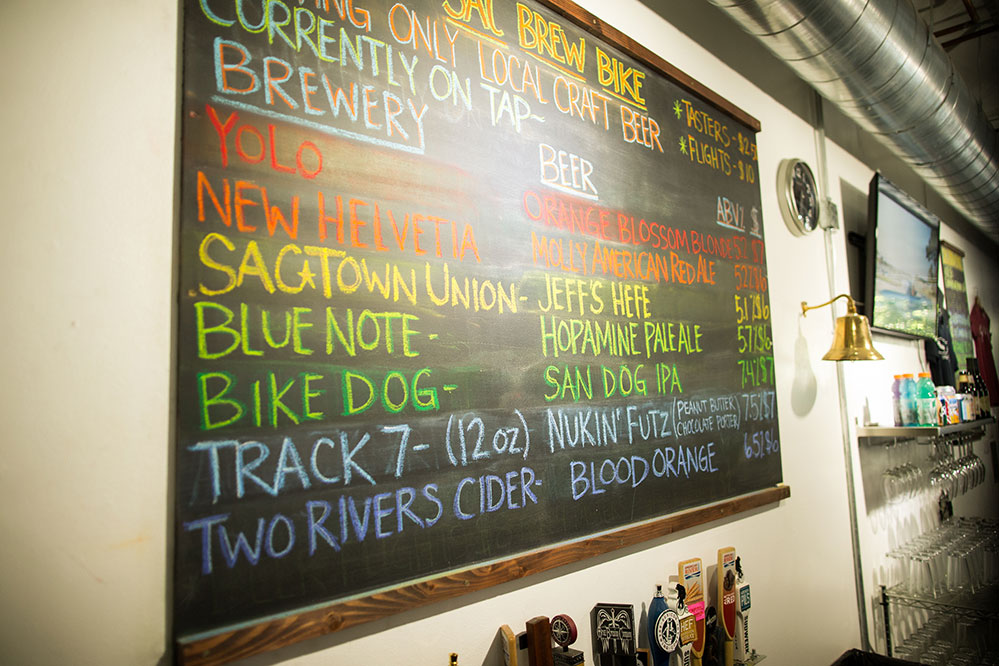 SAC BREW BIKE
ING ONLY LOCAL CRAFT BEER
CURRENTLY ON TAP~
*TASTERS - $2.50
*FLIGHTS - $10
BREWERY BEER ABV% $
YOLO ORANGE BLOSSOM BLONDE
NEW HELVETIA MOLLY AMERICAN RED ALE
SAC★TOWN UNION- JEFF'S HEFE 5.1% $6
BLUE NOTE - HOPAMINE PALE ALE 5.7% $6
BIKE DOG- SAN DOG IPA 7.4% $7
TRACK 7- (12oz) NUKIN' FUTZ (PEANUT BUTTER CHOCOLATE PORTER) 7.5% $7
TWO RIVERS CIDER- BLOOD ORANGE 6.5% $6
HEF